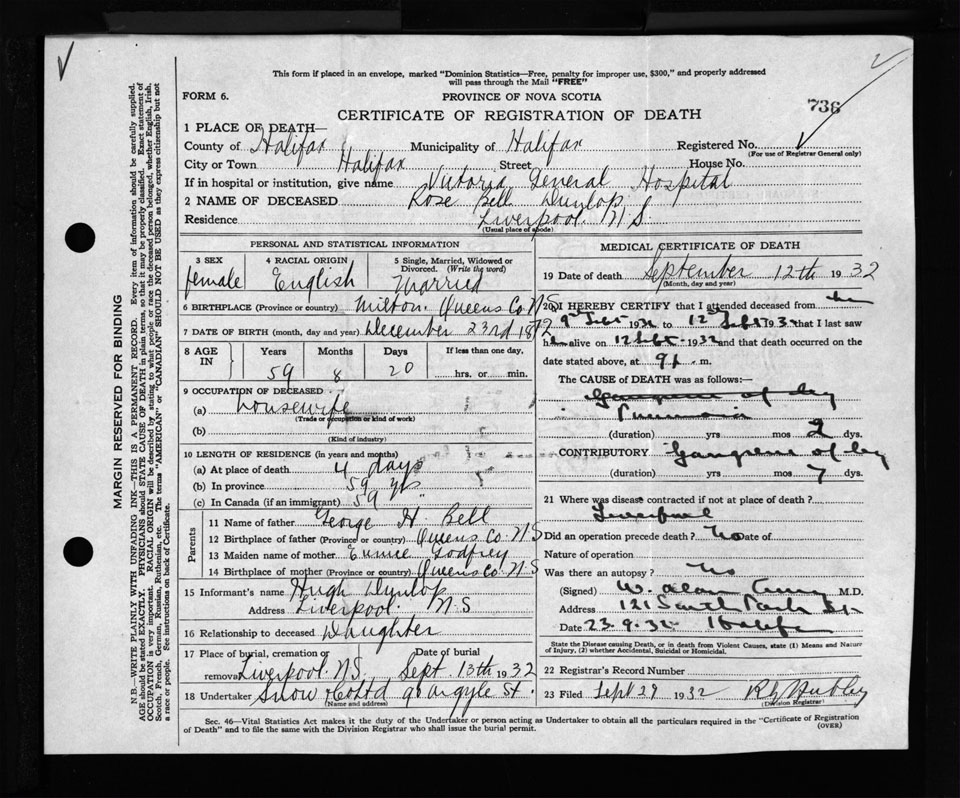 This form if placed in an envelope, marked "Dominion Statistics—Free, penalty for improper use, $300," and properly addressed
will pass through the Mail "FREE"
FORM 6.
PROVINCE OF NOVA SCOTIA
736
CERTIFICATE OF REGISTRATION OF DEATH
1 PLACE OF DEATH—
County of Halifax Municipality of Halifax Registered No.
(For use of Registrar General only)
City or Town Halifax Street House No.
If in hospital or institution, give name Victoria General Hospital
2 NAME OF DECEASED Rose Bell Dunlop
Residence Liverpool N.S.
(Usual place of abode)
MARGIN RESERVED FOR BINDING
N.B.—WRITE PLAINLY WITH UNFADING INK—THIS IS A PERMANENT RECORD. Every item of information should be carefully supplied.
AGE should be stated EXACTLY. PHYSICIANS should STATE CAUSE OF DEATH in plain terms, so that it may be properly classified. Exact statement of
OCCUPATION is very important. RACIAL ORIGIN will be described by stating to what people or race the deceased person belonged, whether English, Irish,
Scotch, French, German, Russian, Ruthenian, etc. The terms "AMERICAN" or "CANADIAN" SHOULD NOT BE USED as they express citizenship but not
a race or people. See instructions on back of Certificate.
PERSONAL AND STATISTICAL INFORMATION
3 SEX
female
4 RACIAL ORIGIN
English
5 Single, Married, Widowed or
Divorced. (Write the word)
Married
6 BIRTHPLACE (Province or country) Milton Queens Co N.S
7 DATE OF BIRTH (month, day and year) December 23rd 1872
8 AGE IN
Years Months Days If less than one day,
59 8 20 hrs. or min.
9 OCCUPATION OF DECEASED
(a) housewife
(Trade or occupation or kind of work)
(b)
(Kind of industry)
10 LENGTH OF RESIDENCE (in years and months)
(a) At place of death 4 days
(b) In province 59 yrs
(c) In Canada (if an immigrant) 59 "
Parents
11 Name of father George H. Bell
12 Birthplace of father (Province or country) Queens Co. N.S
13 Maiden name of mother Eunice Godfrey
14 Birthplace of mother (Province or country) Queens Co. N.S
15 Informant's name Hugh Dunlop
Address Liverpool N.S
16 Relationship to deceased Daughter
17 Place of burial, cremation or Date of burial
removal Liverpool N.S. Sept 13th 1932
18 Undertaker Snow & Co Ltd 90 Argyle St.
(Name and address)
MEDICAL CERTIFICATE OF DEATH
19 Date of death September 12th 1932
(Month, day and year)
20 I HEREBY CERTIFY that I attended deceased from the
9th Sept 1932 to 12th Sept 1932 that I last saw
her alive on 12 Sept 1932 and that death occurred on the
date stated above, at 9 p. m.
The CAUSE of DEATH was as follows:—
Gangrene of leg
Pneumonia
(duration) yrs mos 2 dys.
CONTRIBUTORY Gangrene of leg
(duration) yrs mos 7 dys.
21 Where was disease contracted if not at place of death?
Liverpool
Did an operation precede death? No Date of
Nature of operation
Was there an autopsy? No
(Signed) W. Alan Curry M.D.
Address 121 South Park St.
Date 23.9.32 Halifax
State the Disease causing Death, or in death from Violent Causes, state (1) Means and Nature
of Injury, (2) whether Accidental, Suicidal or Homicidal.
22 Registrar's Record Number
23 Filed Sept 29 1932
(Division Registrar)
Sec. 46—Vital Statistics Act makes it the duty of the Undertaker or person acting as Undertaker to obtain all the particulars required in the "Certificate of Registration
of Death" and to file the same with the Division Registrar who shall issue the burial permit.
(OVER)